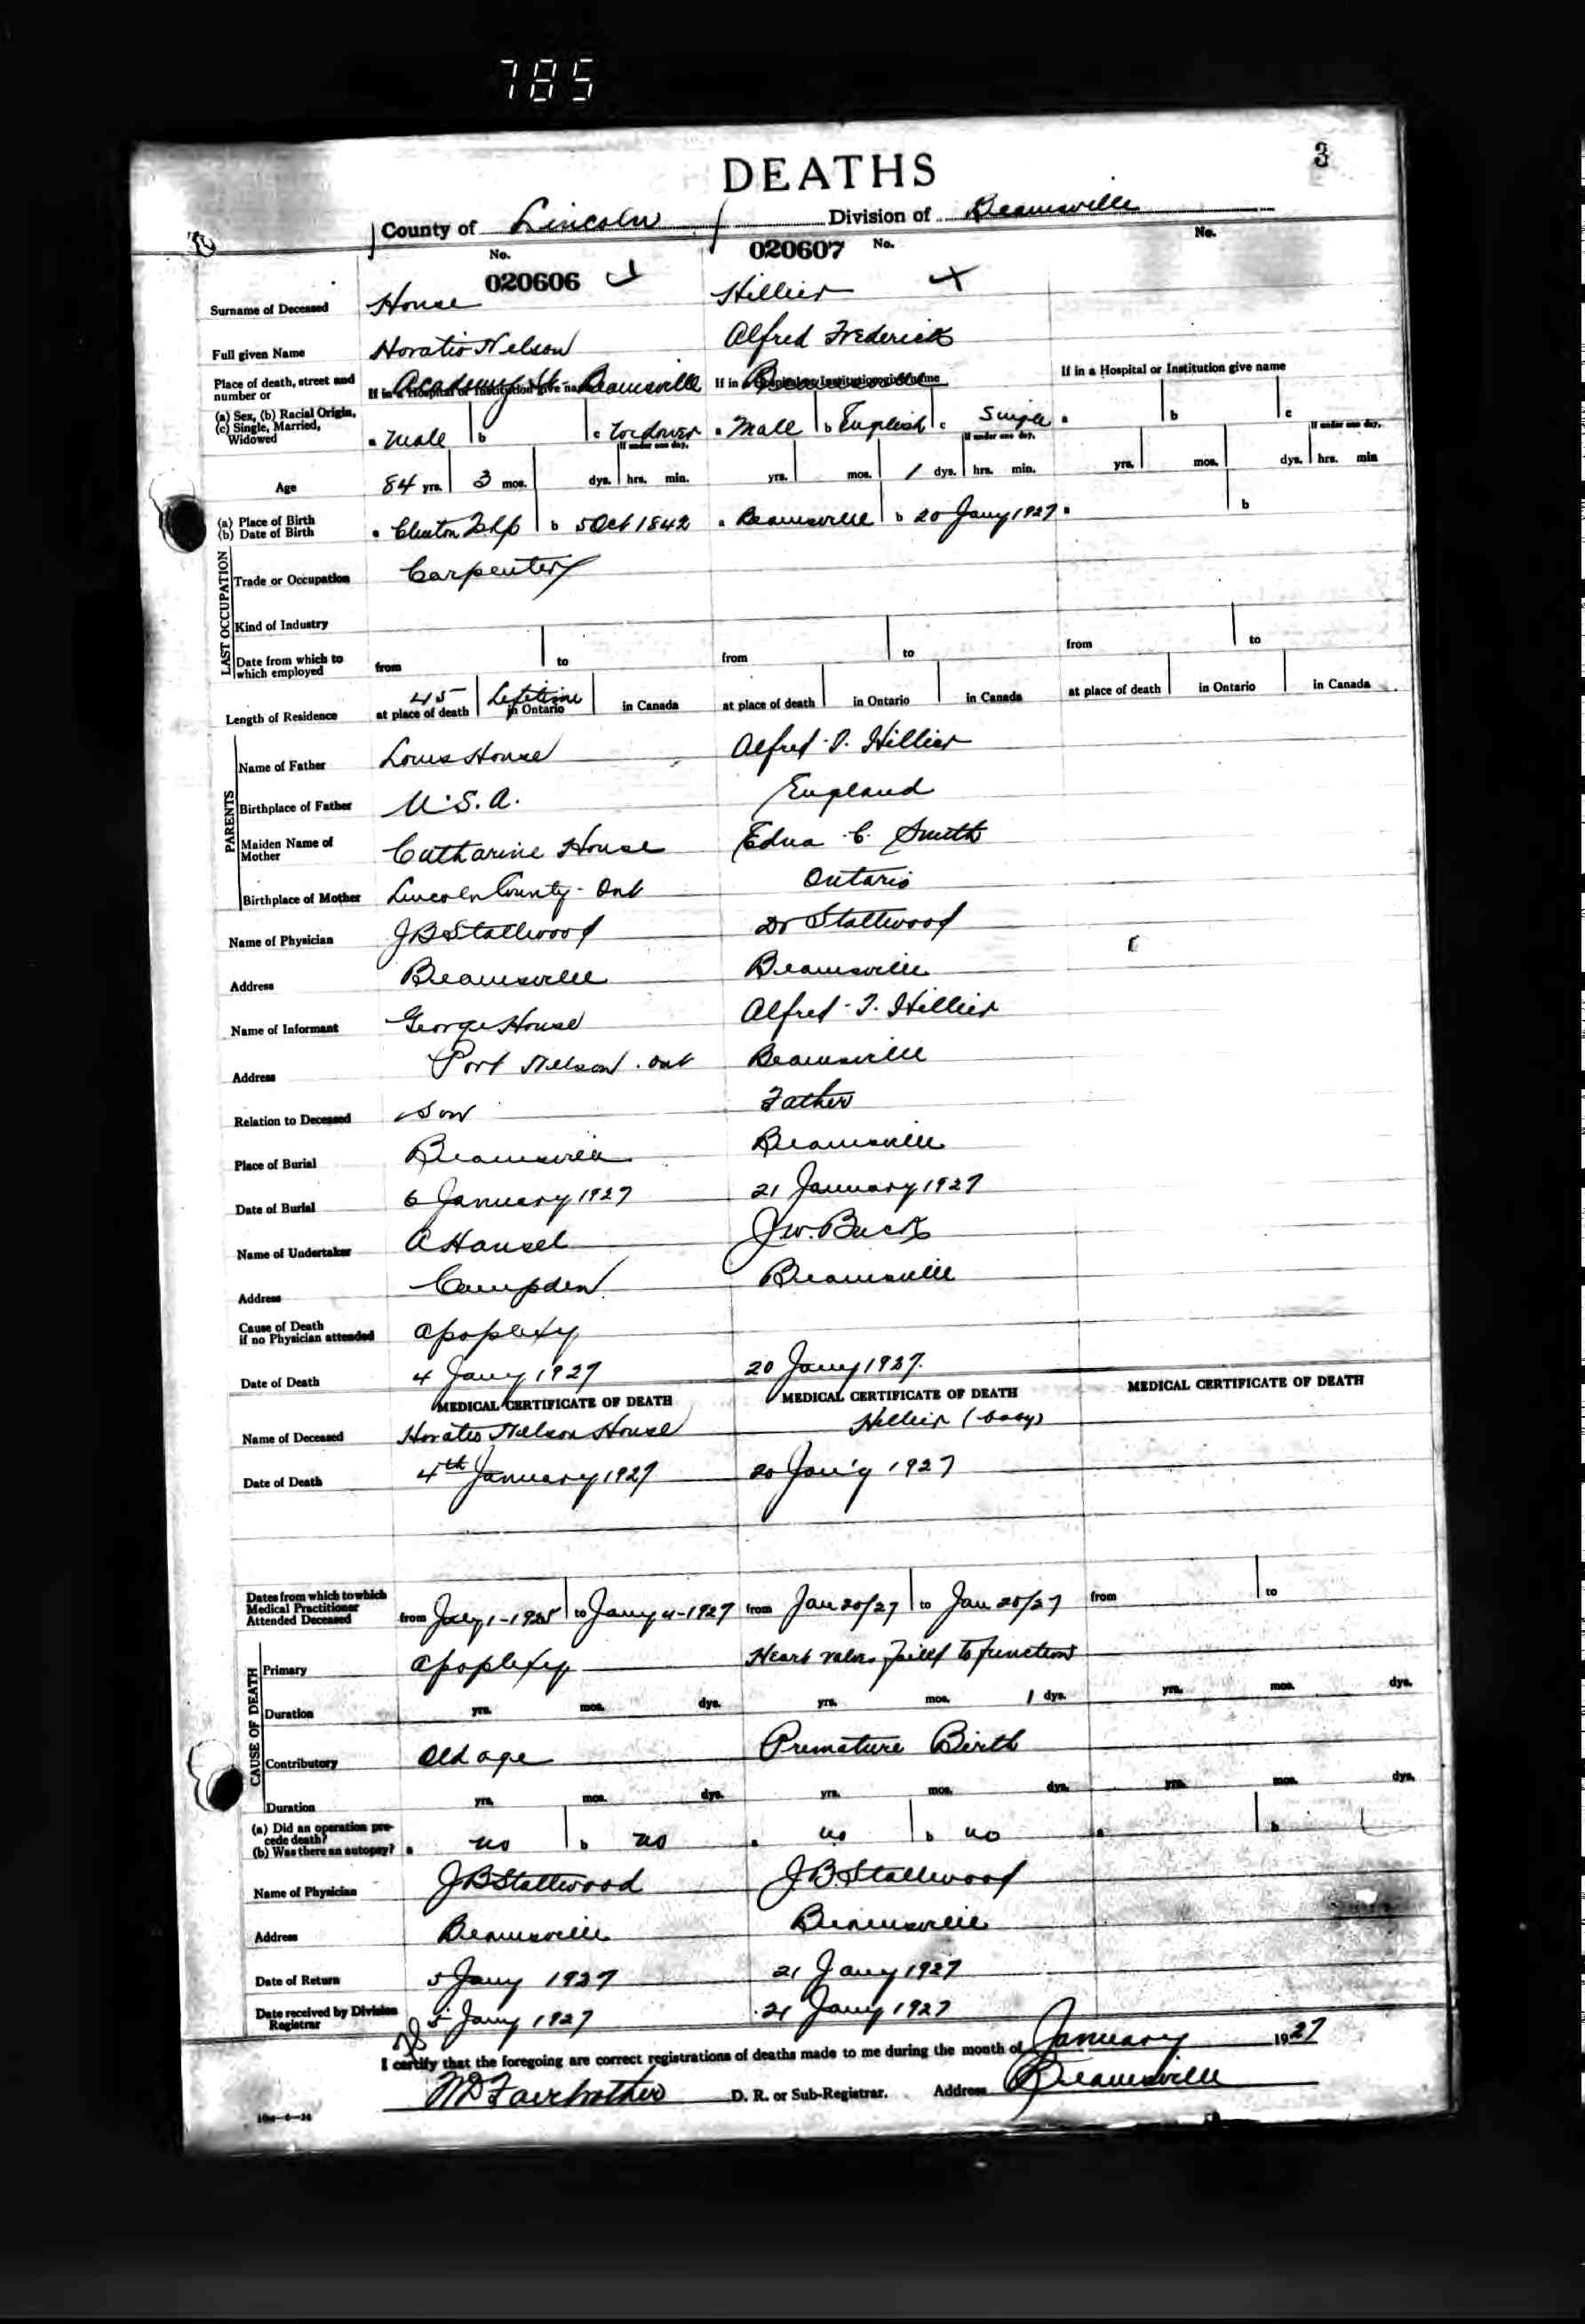 785
3
DEATHS
County of Lincoln Division of Beamsville
No. No. No.
020606 020607
Surname of Deceased House Hillier
Full given Name Horatio Nelson Alfred Frederick
Place of death, street and number or Academy St. Beamsville Beamsville
If in a Hospital or Institution give name If in a Hospital or Institution give name If in a Hospital or Institution give name
(a) Sex, (b) Racial Origin, (c) Single, Married, Widowed a Male b c Widower a Male b English c Single a b c
If under one day. If under one day. If under one day.
Age 84 yrs. 3 mos. dys. hrs. min. yrs. mos. 1 dys. hrs. min. yrs. mos. dys. hrs. min
(a) Place of Birth (b) Date of Birth a Clinton Tshp b 5 Oct 1842 a Beamsville b 20 Jany 1927 a b
LAST OCCUPATION
Trade or Occupation Carpenter
Kind of Industry
Date from which to which employed from to from to from to
Length of Residence 45 at place of death Lifetime in Ontario in Canada at place of death in Ontario in Canada at place of death in Ontario in Canada
PARENTS
Name of Father Louis House Alfred Hillier
Birthplace of Father U.S.A. England
Maiden Name of Mother Catharine House Edna C. Smith
Birthplace of Mother Lincoln County - Ont Ontario
Name of Physician J B Stallwood Dr Stallwood
Address Beamsville Beamsville
Name of Informant George House Alfred Hillier
Address Port Nelson . Ont Beamsville
Relation to Deceased Son Father
Place of Burial Beamsville Beamsville
Date of Burial 6 January 1927 21 January 1927
Name of Undertaker A Hansel J W. Buck
Address Campden Beamsville
Cause of Death if no Physician attended Apoplexy
Date of Death 4 Jany 1927 20 Jany 1927.
MEDICAL CERTIFICATE OF DEATH MEDICAL CERTIFICATE OF DEATH MEDICAL CERTIFICATE OF DEATH
Name of Deceased Horatio Nelson House Hillier (baby)
Date of Death 4th January 1927 20 Jan'y 1927
Dates from which to which Medical Practitioner Attended Deceased from 1-1925 to Jany 4-1927 from Jan 20/27 to Jan 20/27 from to
CAUSE OF DEATH
Primary Apoplexy Heart valves failed to function
Duration yrs. mos. dys. yrs. mos. 1 dys. yrs. mos. dys.
Contributory Old age Premature Birth
Duration yrs. mos. dys. yrs. mos. dys. yrs. mos. dys.
(a) Did an operation precede death? (b) Was there an autopsy? a no b no a no b no a b
Name of Physician J B Stallwood J B. Stallwood
Address Beamsville Beamsville
Date of Return 5 Jany 1927 21 Jany 1927
Date received by Division Registrar 5 Jany 1927 21 Jany 1927
I certify that the foregoing are correct registrations of deaths made to me during the month of January 1927
W D Fairbrother D. R. or Sub-Registrar. Address Beamsville